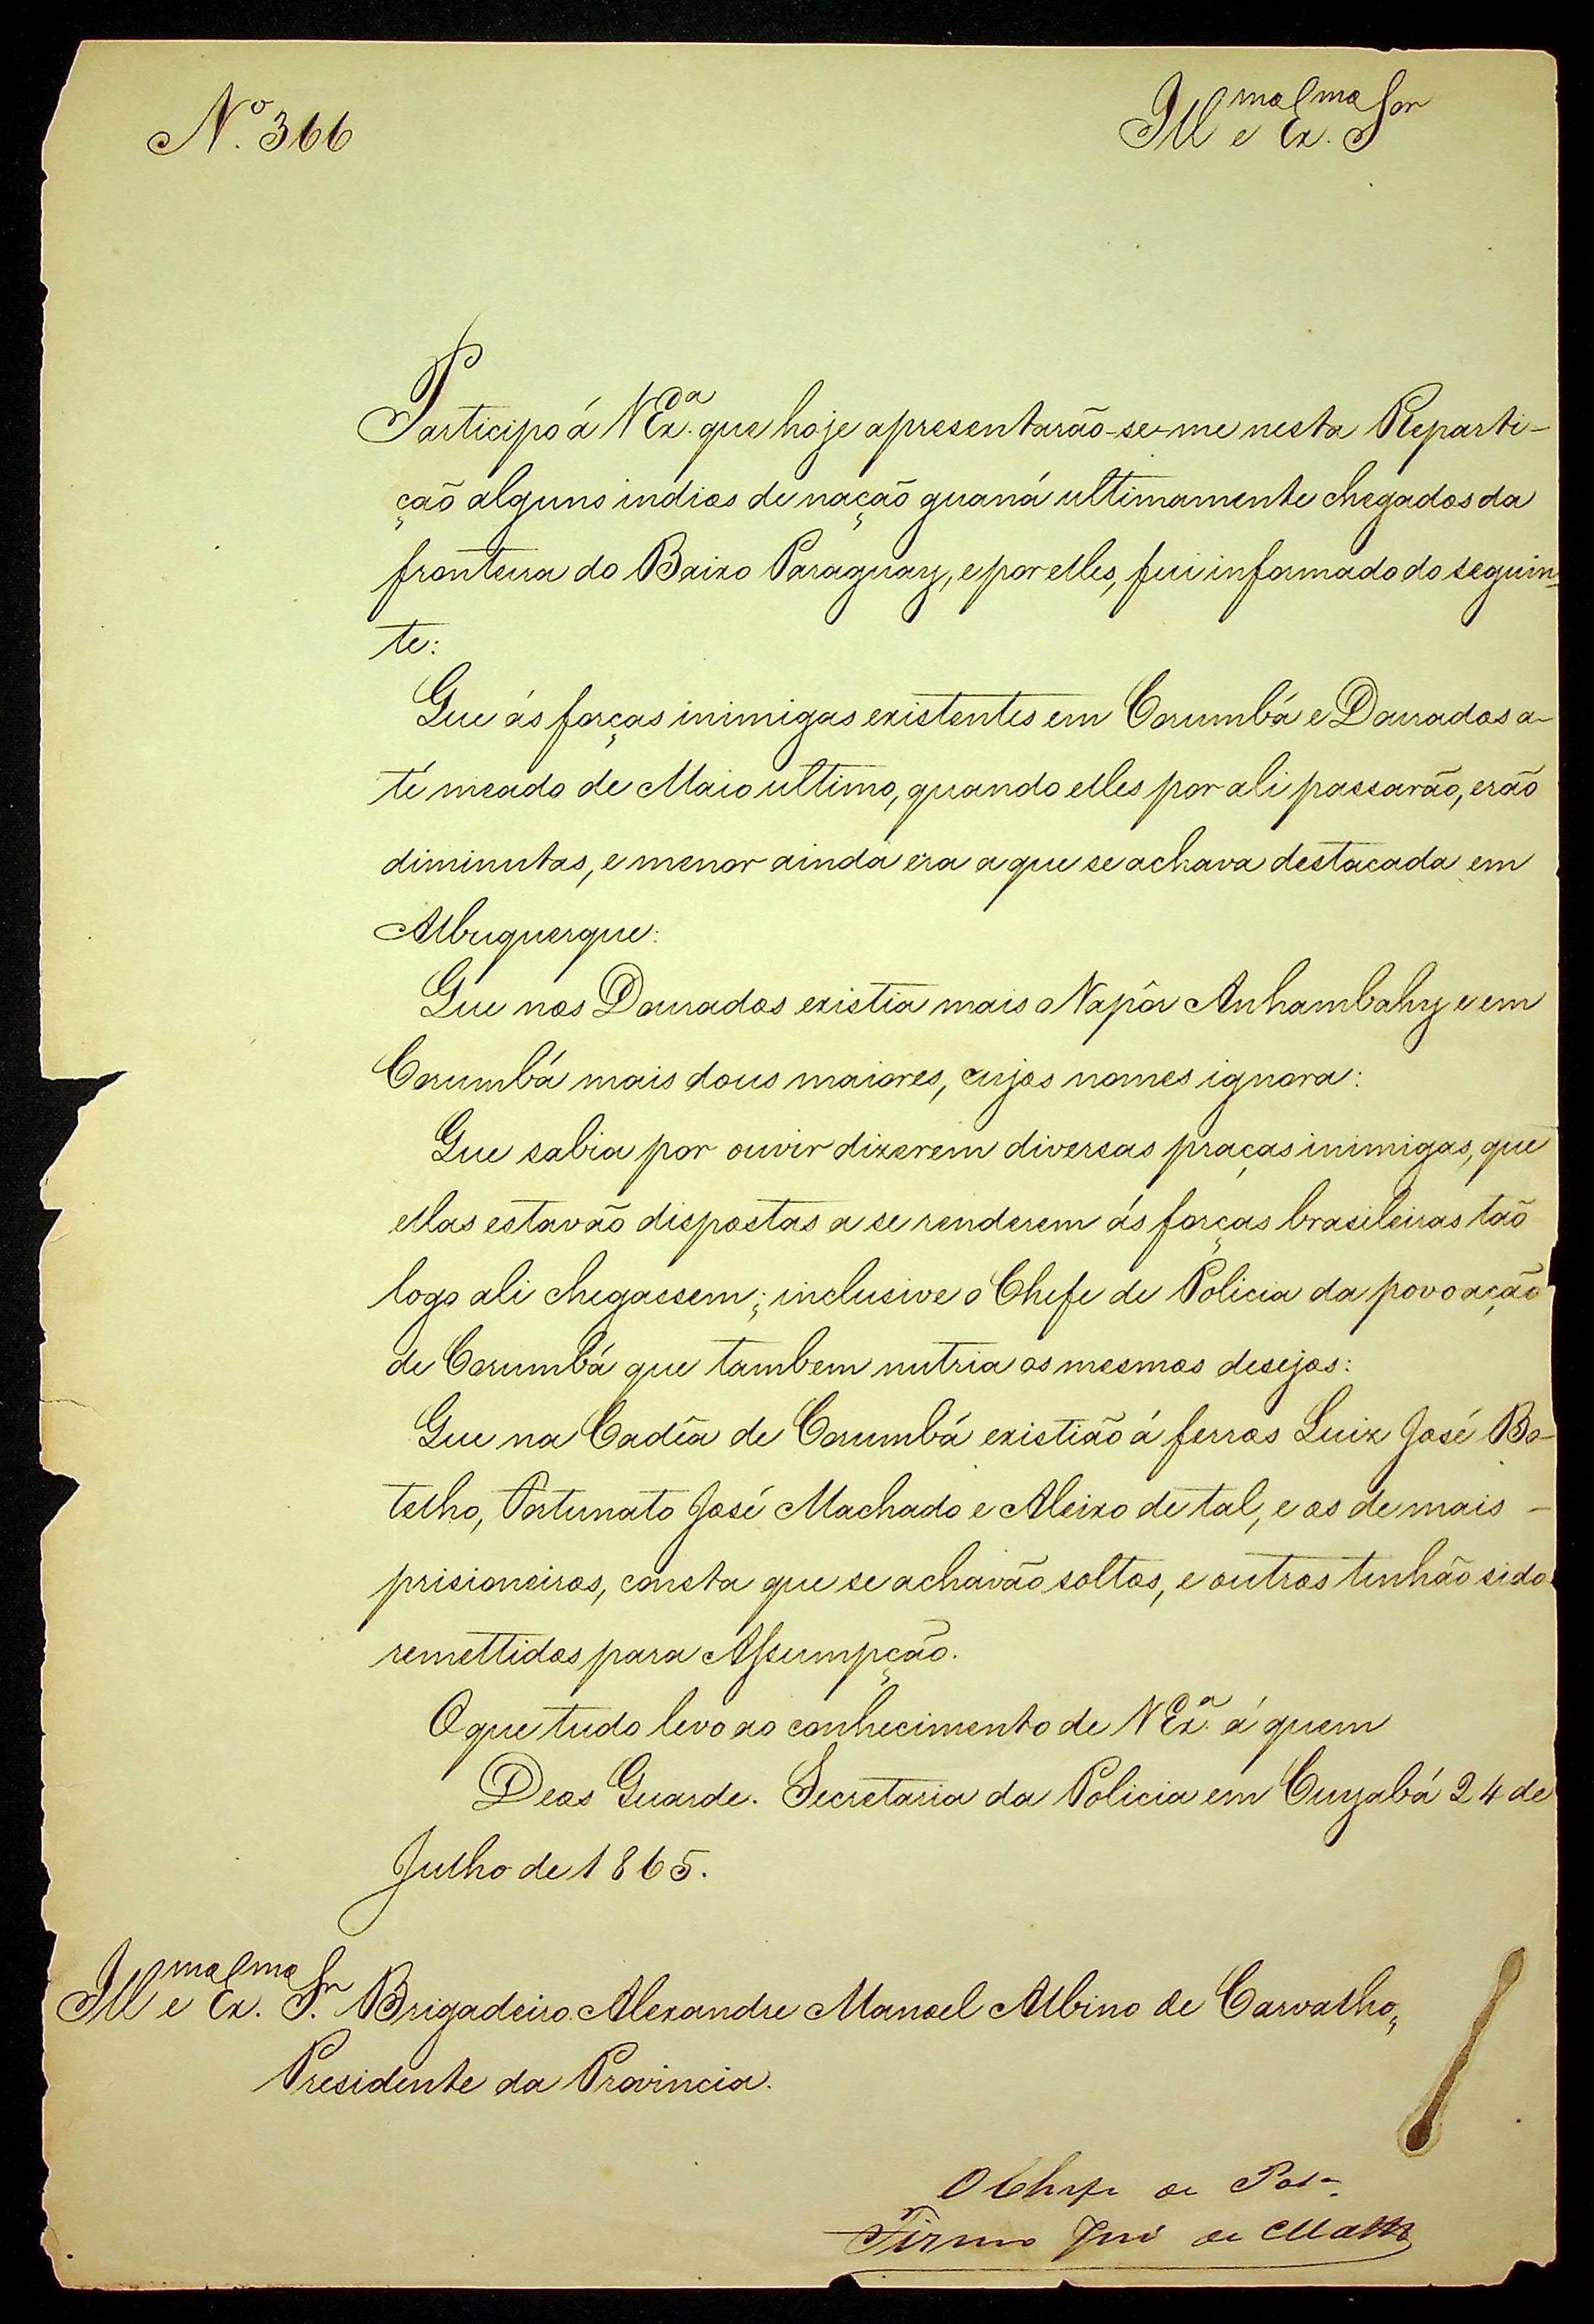 Nº 366
Ill.mo e Ex.mo Snr
Participo á V Ex.ª que hoje apresentarão-se-me nesta Reparti-
ção alguns indios de nação guaná ultimamente chegados da
fronteira do Baixo Paraguay, e por elles, fui informado do seguin-
te:
Que ás forças inimigas existentes em Corumbá e Dourados a-
té meado de Maio ultimo, quando elles por ali passarão, erão
diminutas, e menor ainda era a que se achava destacada em
Albuquerque:
Que nos Dourados existia mais o Vapôr Anhambahy e em
Corumbá mais dous maiores, cujos nomes ignora:
Que sabia por ouvir dizerem diversas praças inimigas, que
ellas estavão dispostas a se renderem ás forças brasileiras tão
logo ali chegassem; inclusive o Chefe de Policia da povoação
de Corumbá que tambem nutria os mesmos desejos:
Que na Cadêa de Corumbá existião á ferros Luiz José Bo-
telho, Fortunato José Machado e Aleixo de tal, e os de mais -
prisioneiros, consta que se achavão soltos, e outros tinhão sido
remettidos para Assumpção.
O que tudo levo ao conhecimento de V Ex.ª á quem
Deos Guarde. Secretaria da Policia em Cuyabá 24 de
Julho de 1865.
Ill.mo e Ex.mo Sr. Brigadeiro Alexandre Manoel Albino de Carvalho,
Presidente da Provincia.
O Chefe de Pol.ª
Firmo José de Mattos